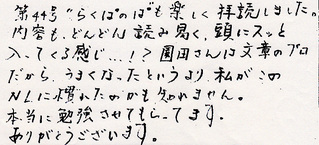 第44号“らくぱのぱ”も楽しく拝読しました。
内容も、どんどん読み易く、頭にスッと
入ってくる感じ…!? 園田さんは文章のプロ
だから、うまくなったというより、私がこの
NLに慣れたのかも知れません。
本当に勉強させてもらってます。
ありがとうございます。